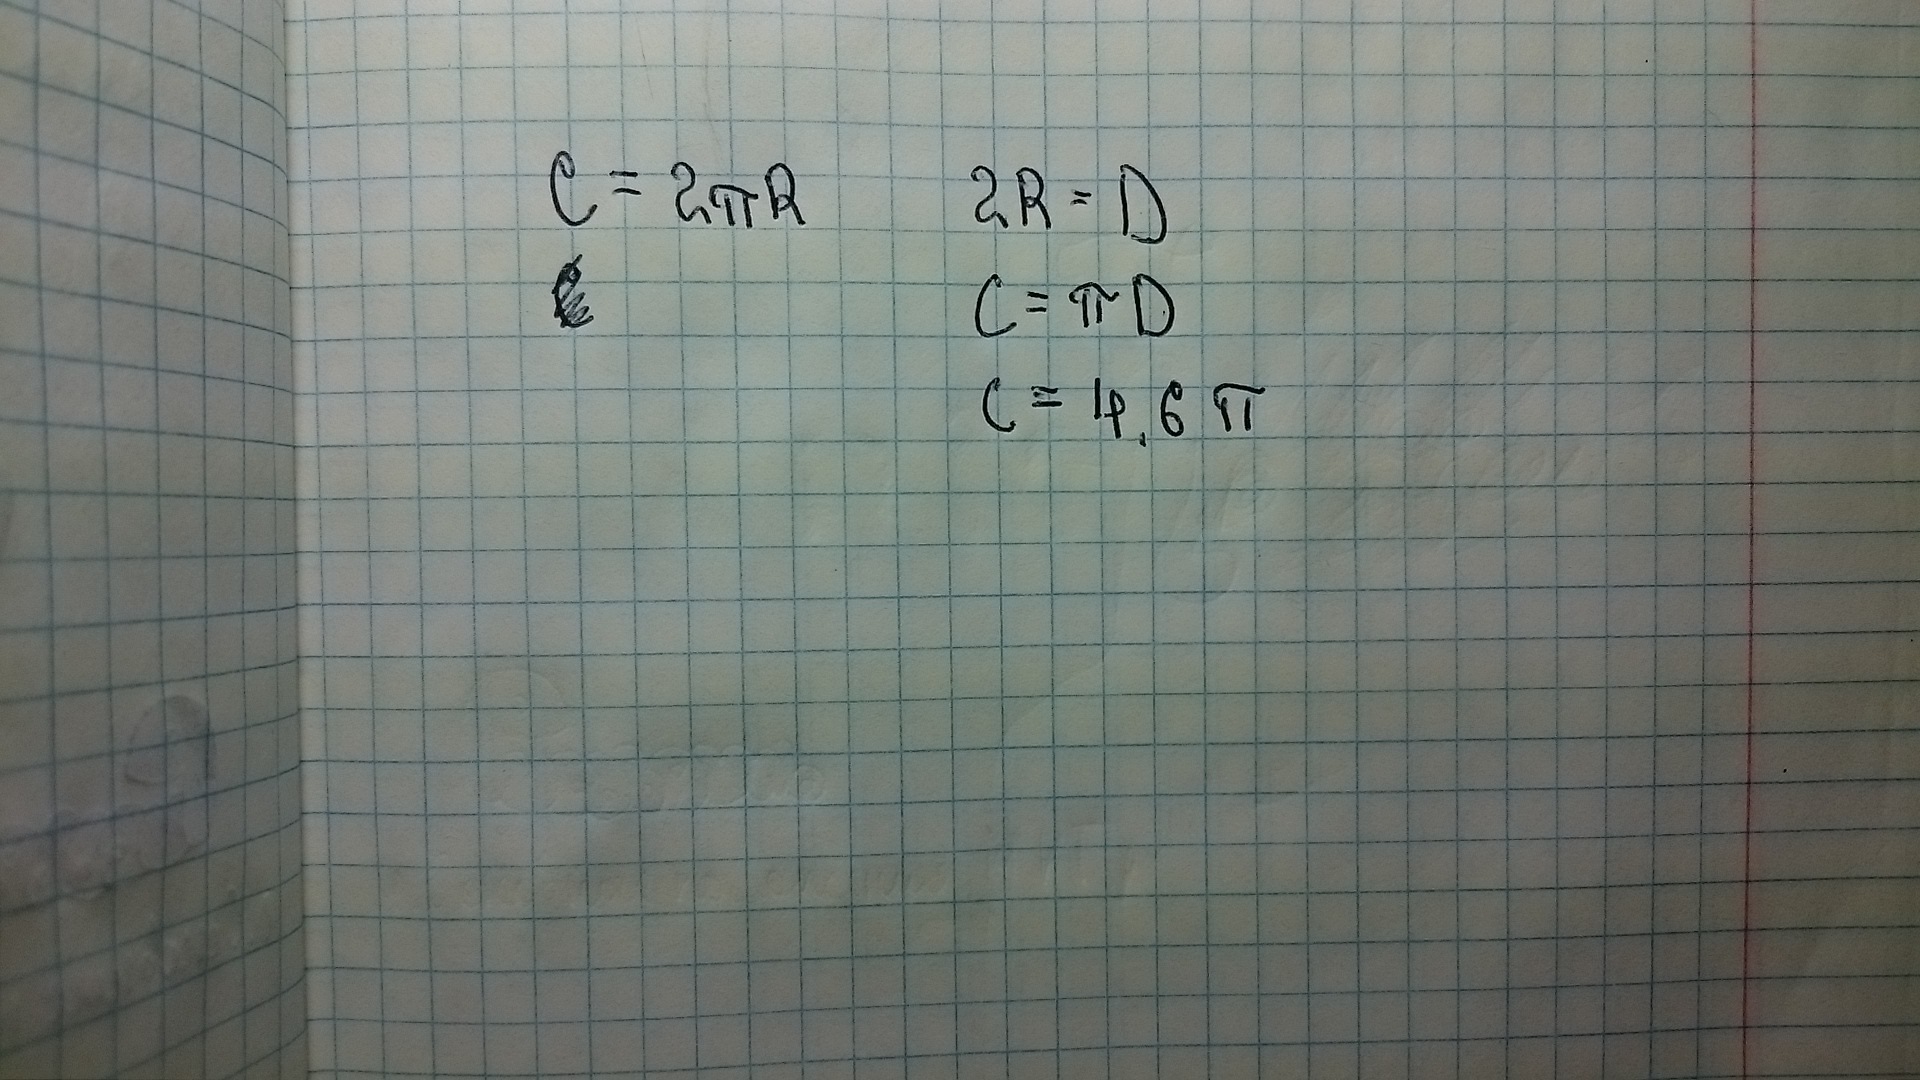 C = 2πR
2R = D
C = πD
C = 4,6 π